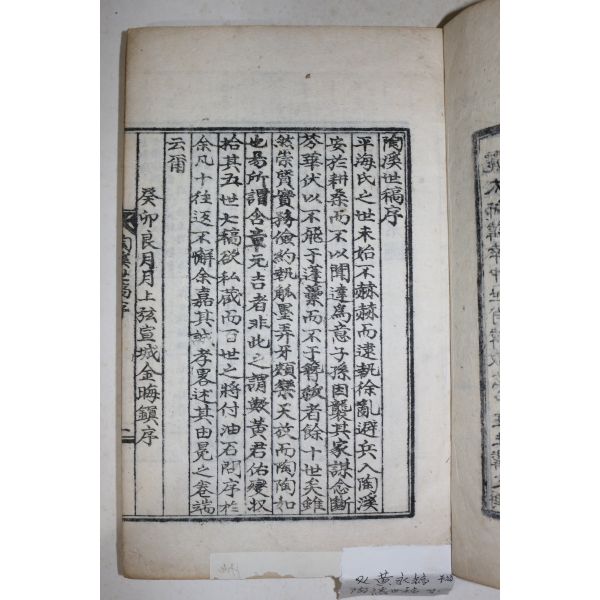 陶溪世稿序
平海氏之世未始不赫赫而逮執徐亂避兵入陶溪
安於耕桑而不以聞達爲意子孫因襲其家謀念斷
芬華伏以不飛于蓬藁而不于
者餘十世矣雖
然崇質實務儉約執觚墨弄牙頰樂天放而陶陶如
也易所謂含章元吉者非此之謂歟黃君佑燮收
拾其五世七稿欲私藏而百世之將付油石問序於
余凡十往返不懈余嘉其誠孝畧述其由冕之卷端
云爾
癸卯良月月上弦宣城金晦鎭序
陶溪世稿序
一
黃永